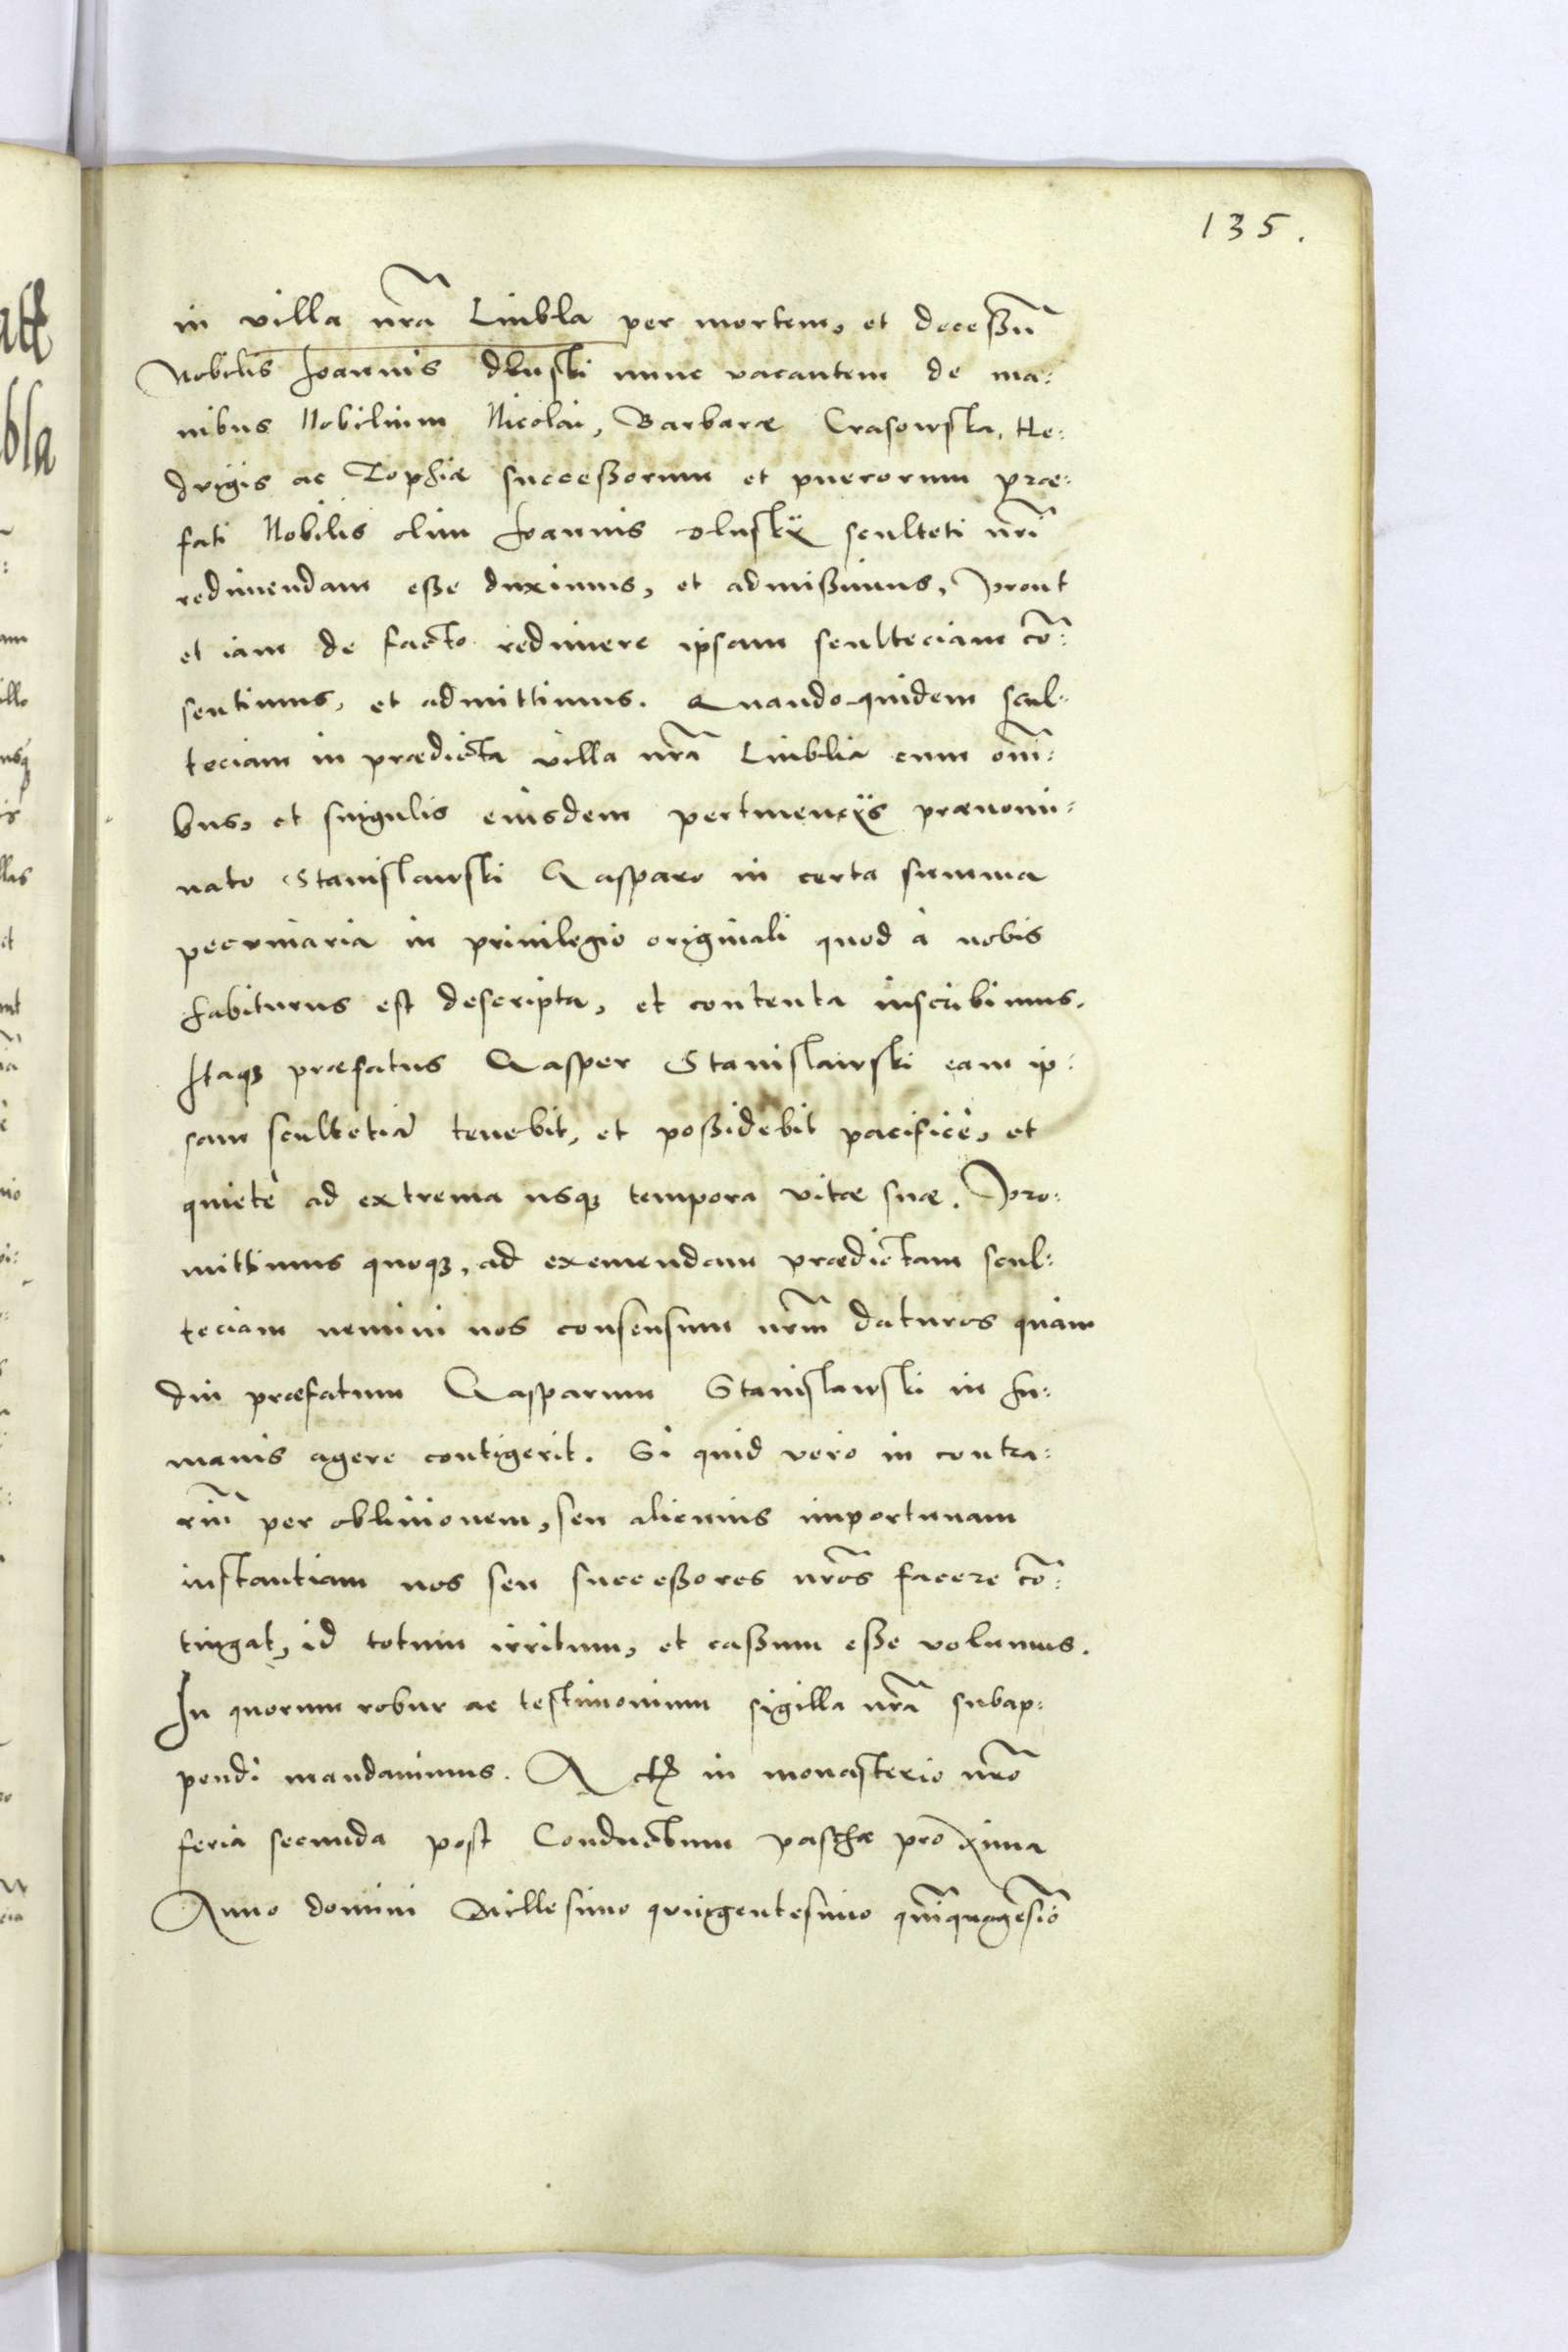 135.
in villa nrã Liubla per mortem, et deceßũ
Nobilis Joannis dluski nunc vacantem de ma:
nibus Nobilium Nicolai, Barbaræ Crasowska, He:
dvigis ac Zophiæ succeßorum et puerorum præ:
fati Nobilis olim Joannis dluskÿ sculteti nrĩ
redimendam eße duximus, et admißimus, Prout
et iam de facto redimere ipsam sculteciam cõ:
sentimus, et admittimus. Quandoquidem scul:
teciam in prædicta villa nrã Liublia cum omĩ:
bus, et singulis eiusdem pertinencÿs prænomi:
nato Stanislawski Casparo in certa summa
pecuniaria in priuilegio originali quod à nobis
habiturus est descripta, et contenta inscribimus.
Itaqꝫ præfatus Casper Stanislawski eam ip:
sam scultetiã tenebit, et poßidebit pacificè, et
quietè ad extrema usqꝫ tempora vitæ suæ. Pro:
mittimus quoqꝫ, ad exemendam prædictam scul:
teciam nemini nos consensum nrm̃ daturos quam
diu præfatum Casparum Stanislawski in hu:
manis agere contigerit. Si quid vero in contra:
riũ per obliuionem, seu alicuius importunam
instantiam nos seu succeßores nrõs facere cõ:
tingat, id totum irritum, et caßum eße volumus.
In quorum robur ac testimonium sigilla nrã subap:
pendi mandauimus. Act in monasterio nrõ
feria secunda post Conductum paschæ proxima
Anno domini Millesimo quingentesimo quĩquagesiõ